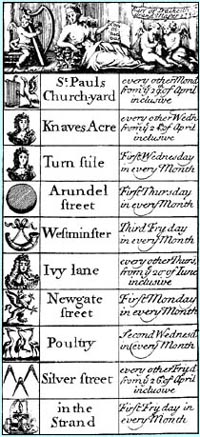 St. Pauls
Church-yard
every other Mond.
from yͤ 29 of April
inclusive
Knaves Acre
every other Wedn.
from yͤ 24 of April
inclusive
Turn stile
First Wednesday
in every Month
Arundel
street
First Thursday
in every Month
Westminster
Third Fryday
in every Month
Ivy lane
every other Thurs.
from yͤ 20 of June
inclusive
Newgate
street
First Monday
in every Month
Poultry
Second Wednesd.
in every Month
Silver street
every other Fryd.
from yͤ 26 of April
inclusive
in the
Strand
First Fryday in
every Month